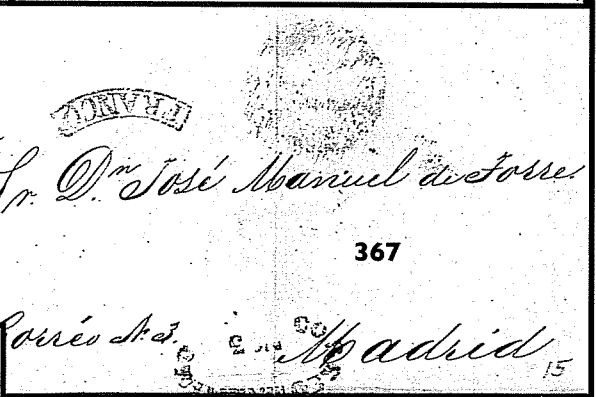 FRANCO
Sr. Dn. José Manuel de Torre
367
Corréo N. 3.
Madrid
15